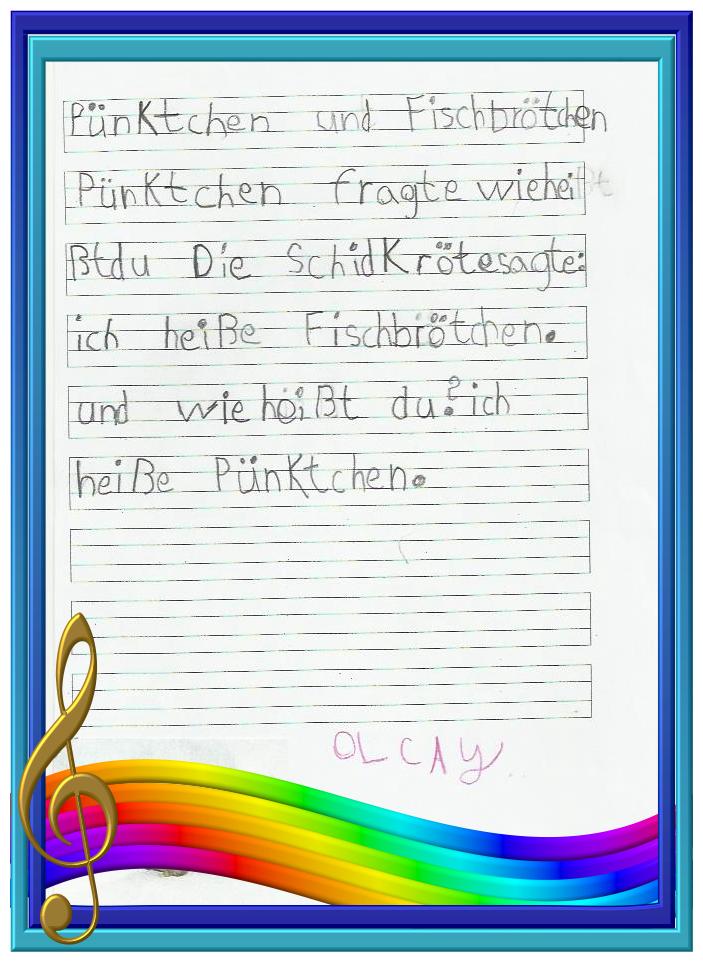 Pünktchen und Fischbrötchen
Pünktchen fragte wieheißt
ßtdu Die SchidKrötesagte:
ich heiße Fischbrötchen.
und wie heißt du? ich
heiße Pünktchen.
OLCAY